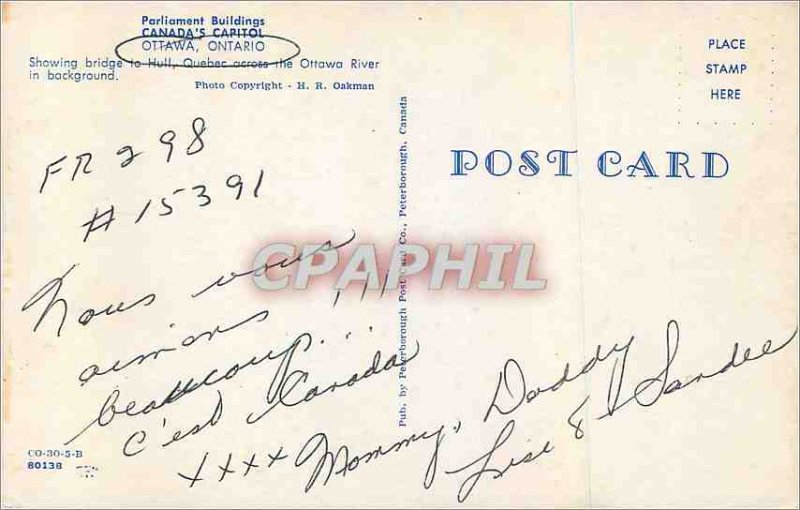 Parliament Buildings
CANADA'S CAPITOL
OTTAWA, ONTARIO
Showing bridge to Hull, Quebec across the Ottawa River
in background.
Photo Copyright - H. R. Oakman
FR 298
#15391
Nous vous
aimons !!!
beaucoup...
c'est Canada
xxxx Mommy, Daddy
Lise & Sandee
CO-30-5-B
80138
Pub. by Peterborough Post Card Co., Peterborough, Canada
POST CARD
PLACE
STAMP
HERE
CPAPHIL